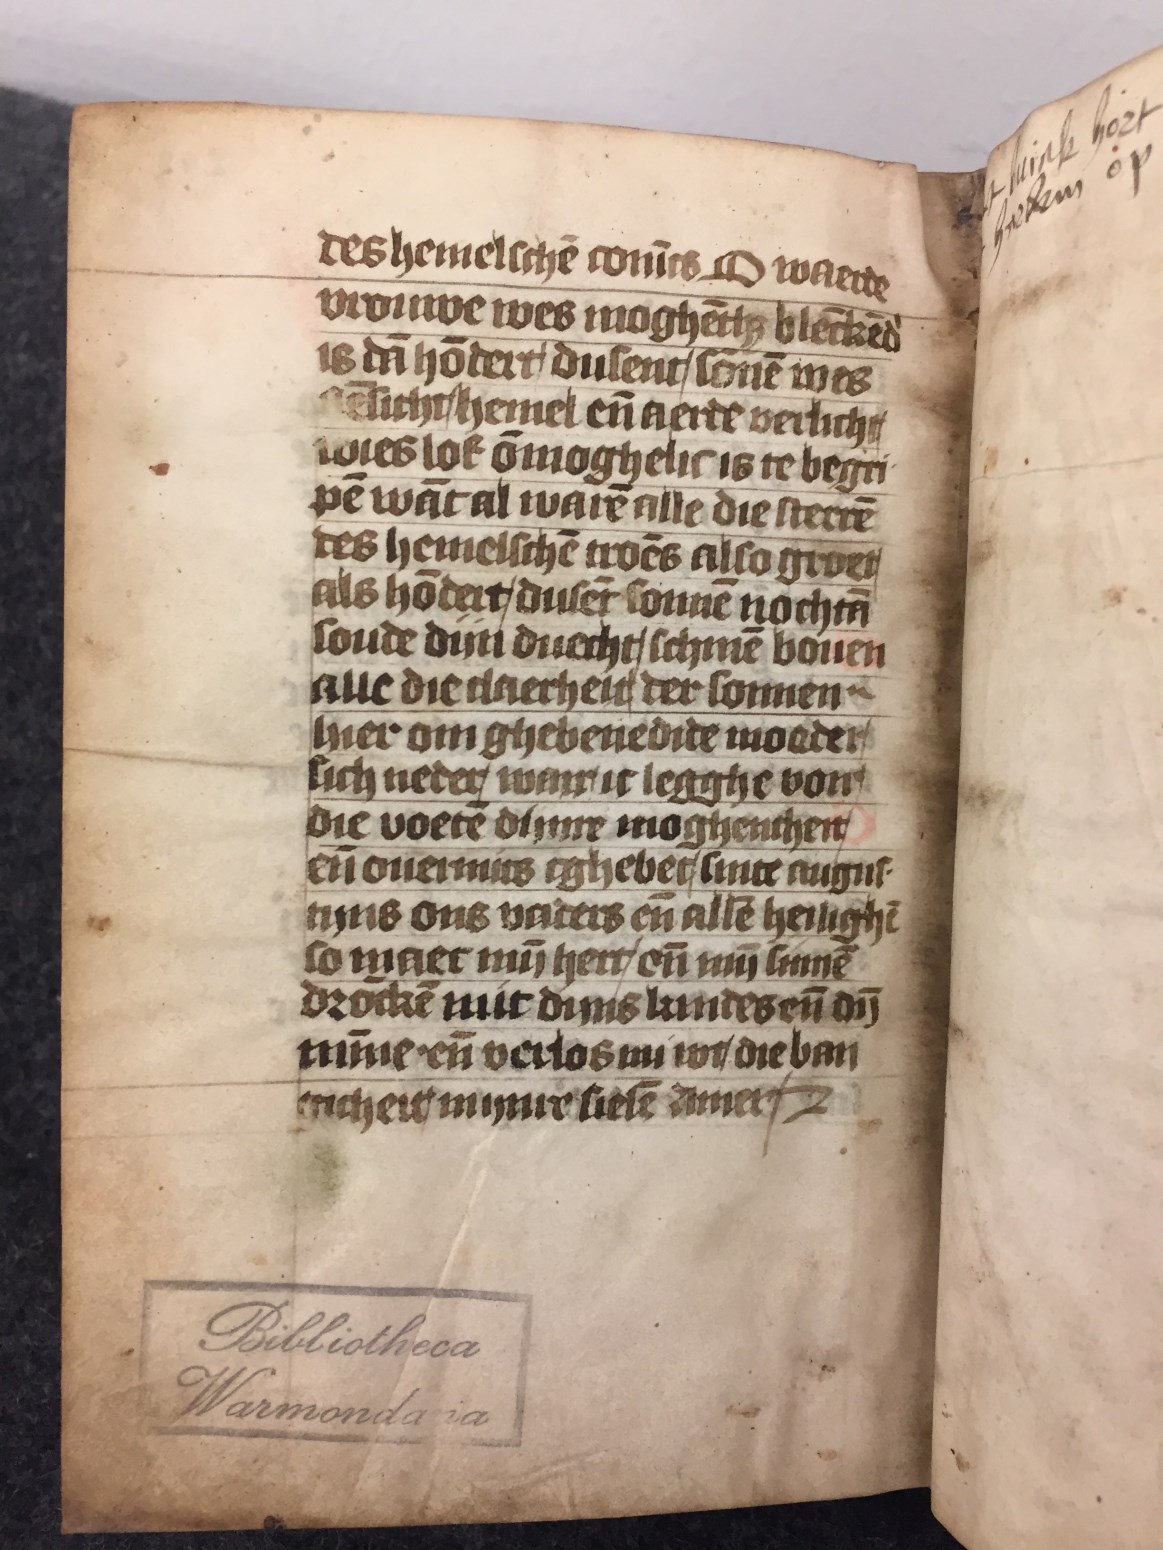 des hemelschē conīcs O waerde
vrouwe wes moghēth; blēckēd
is dā hōdert/ dusent/ sōnē wes
gesicht/ hemel eñ aerde verlicht
wies lof ōmoghelic is te begri
pē wāt al warē alle die sterrē
des hemelschē troēs also groet
als hōdert/ dusēt sonnē nochtā
soude dijn duecht/ schinē bouen
alle die claerheit der sonnen
hier om ghebenedide moeder
sich neder/ want ic legghe voir
die voetē dijnre moghentheit
eñ ouermits tghebet/ sinte augus
tijns ons vaders eñ allē heilighē
so maect mijn hert/ eñ mijn sinnē
drōckē mit dijns kindes eñ dijn
mīne eñ verlos mi wt/ die ban
cheit mijnre sielē Amen
hort
op
Bibliotheca
Warmondana